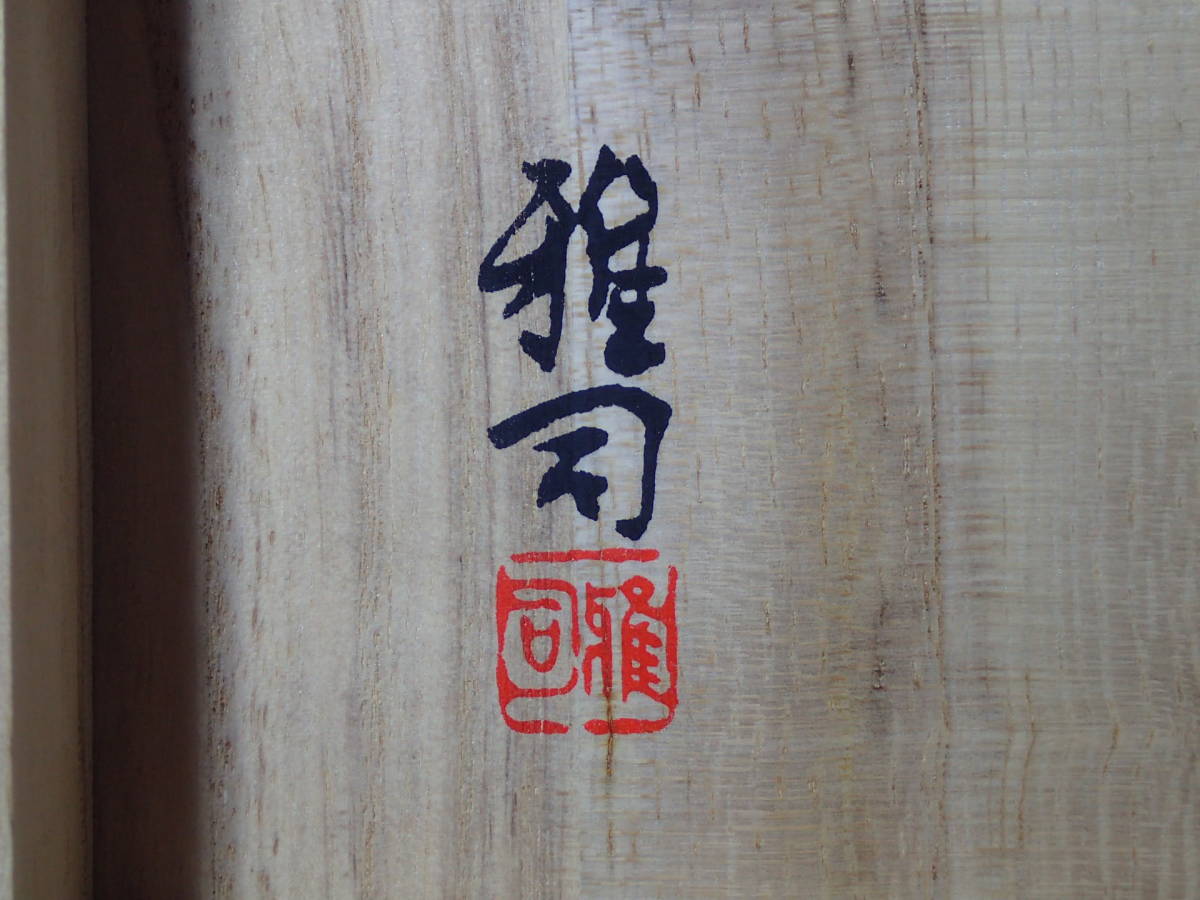 雅司
雅司